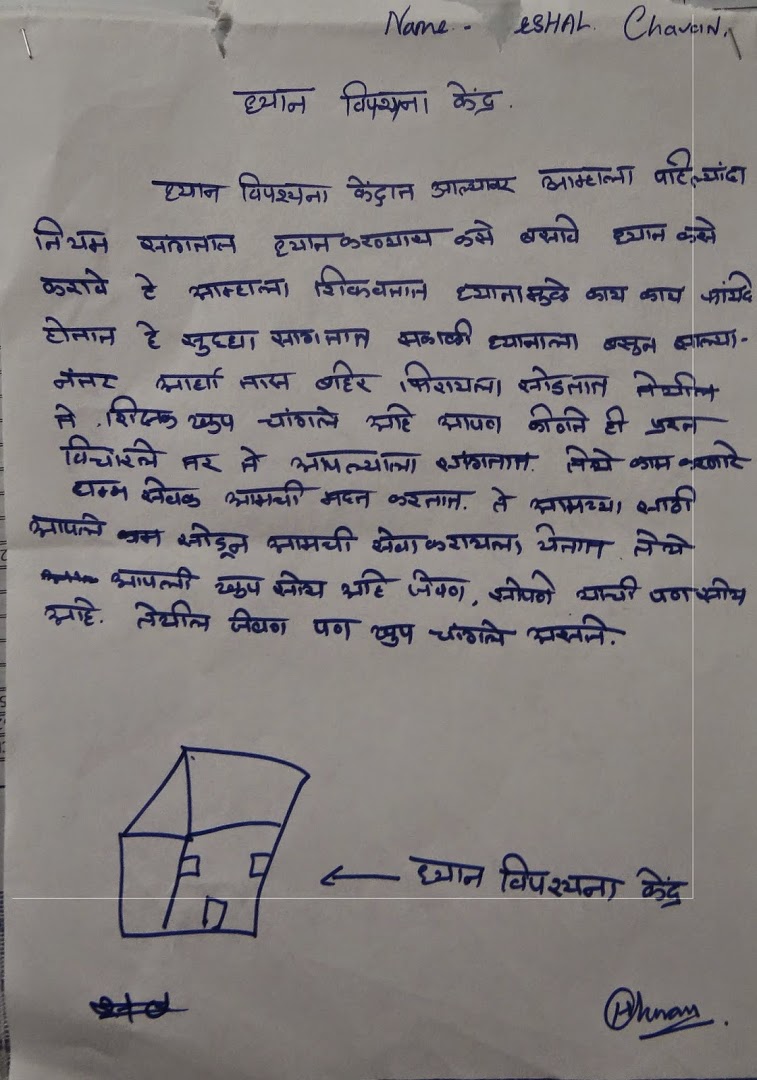 Name - ESHAL. Chavan.
ध्यान विपश्यना केंद्र.
ध्यान विपश्यना केंद्रात आल्यावर आम्हाला पहिल्यांदा
नियम सांगतात ध्यान करण्यास कसे बसावे ध्यान कसे
करावे हे आम्हाला शिकवतात ध्यानामुळे काय काय फायदे
होतात हे सुध्दा सांगतात सकाळी ध्यानाला बसून झाल्या-
नंतर आर्धा तास बहिर फिरायला सोडतात तेथील
ते शिक्षक खुप चांगले आहे आपण कोणते ही प्रश्न
विचारले तर ते आपल्याला सांगतात. तेथे काम करणारे
धम्म सेवक आमची मदत करतात. ते आमच्या साठी
आपले काम सोडून आमची सेवा करायला येतात तेथे
आपली खुप सोय आहे जेवण, झोपणे याची पण सोय
आहे. तेथील जेवण पण खुप चांगले असते.
ध्यान विपश्यना केंद्र